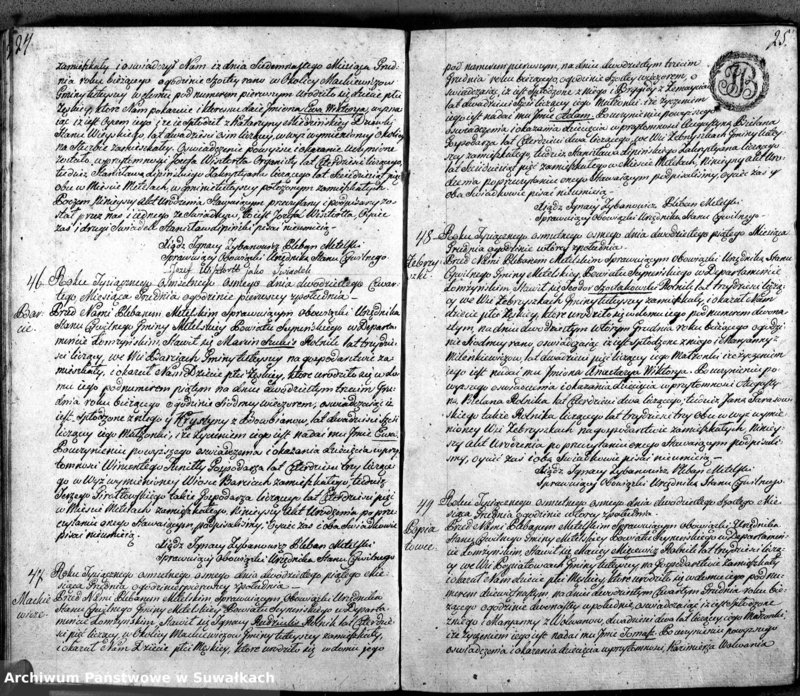 24
zamieszkały i oświadczył Nam iż dnia Siedemnastego Miesiąca Grud-
nia roku bieżącego o godzinie szóstej rano w Okolicy Maćkiewiczow
Gminy tutejszey w domu pod numerem pierwszym urodziło się dziecie płci
Żeńskiey, które Nam pokazuie i któremu daie Imiona Ewa Wiktorya, wyzna
iąc iż iest Oycem iego i że iest spłodzone z Katarzyny
Stanu Wieyskiego lat dwadzieścia
zamieszkałey. Oświadczenie powyższe i okazanie uczynione
zostało, w przytomności Jozefa Wisztorta Organisty lat czterdzieści liczącego,
tudzież Stanisława Lipińskiego Zakrystyana liczącego lat sześćdziesiąt pięć
obu w Mieście Metelach w Gminie tutejszey położonym zamieszkałych.
Poczem Ninieyszy Akt Urodzenia Stawaiącym przeczytany i podpisany zos-
tał przez nas i iednego ze Świadków, to iest Jozefa Wisztorta, Oyciec
zaś i drugi Świadek Stanisław Lipiński pisać nieumieią.
Xiądz Ignacy Zybanowicz Pleban Metelski
Sprawuiący Obowiązki Urzędnika Stanu Cywilnego
Jozef Wisztortt Jako Swiadek
46. Roku Tysiącznego Osmsetnego osmego dnia dwudziestego Czwar-
tego Miesiąca Grudnia o godzinie pierwszey zpołudnia.
Bar-
cie.
Przed Nami Plebanem Metelskim Sprawuiącym Obowiązki Urzędnika
Stanu Cywilnego Gminy Metelskiey Powiatu Seyneńskiego w Departa-
mencie Łomżyńskim, Stawił się Marcin Rolnik lat trzydzie-
ści liczący, we Wsi Barciach Gminy tutejszey na gospodarstwie za-
mieszkały, i okazał Nam Dziecie płci Żeńskiey, które urodziło się w do-
mu iego pod numerem piątym na dniu dwudziestym trzecim Gru-
dnia roku bieżącego o godzinie Siodmey wieczorem, oświadczaiąc iż
iest spłodzone z niego i Krystyny z lat dwadzieścia sześć
liczącey iego Małżonki, i że życzeniem iego iest nadać mu Imie Ewa.
Po uczynieniu powyższego oświadczenia i okazania dziecięcia w przy-
tomności Wincentego Gospodarza lat Czterdzieści trzy liczące-
go w Wyż wymienioney Wiosce Barciach zamieszkałego, tudzież
Jerzego także Gospodarza liczącego lat Czterdzieści pięć
w Mieście Metelach zamieszkałego. Ninieyszy Akt Urodzenia po prze-
czytaniu onego Stawaiącym podpisaliśmy, Oyciec zaś i oba Świadkowie
pisać nieumieią.
Xiądz Ignacy Zybanowicz Pleban Metelski
Sprawuiący Obowiązki Urzędnika Stanu Cywilnego
47. Roku Tysiącznego osmsetnego osmego dnia dwudziestego piątego Mie-
siąca Grudnia o godzinie pierwszey zpołudnia.
Maćkie
wicze.
Przed Nami Plebanem Metelskim Sprawuiącym Obowiązki Urzędnika
Stanu Cywilnego Gminy Metelskiey Powiatu Seyneńskiego w Departa-
mencie Łomżyńskim, Stawił się Ignacy Rolnik lat Czterdzie-
ści pięć liczący, w Okolicy Maćkiewiczow Gminy tutejszey zamieszkały,
i okazał Nam Dziecie płci Męskiey, które urodziło się w domu iego
25.
pod numerem pierwszym, na dniu dwudziestym trzecim
Grudnia roku bieżącego, o godzinie Szóstey wieczorem, o
świadczaiąc, iż iest spłodzone z niego i Brygidy z
lat dwadzieścia sześć liczącey iego Małżonki, i że życzeniem
iego iest nadać mu Imie Adam. Po uczynieniu powyższego
oświadczenia i okazania dziecięcia w przytomności Augustyna Bielana
Gospodarza lat Czterdzieści dwa liczącego, we Wsi Żebryszkach Gminy tutey-
szey zamieszkałego, tudzież Stanisława Lipińskiego Zakrystyana liczącego
lat sześćdziesiąt pięć zamieszkałego w Mieście Metelach, Ninieyszy Akt Uro-
dzenia po przeczytaniu onego Stawaiącym podpisaliśmy, Oyciec zaś y
oba Świadkowie pisać nieumieią.
Xiądz Ignacy Zybanowicz Pleban Metelski
Sprawuiący Obowiązki Urzędnika Stanu Cywilnego.
48. Roku Tysiącznego osmsetnego osmego dnia dwudziestego piątego Miesiąca
Grudnia o godzinie wtórey zpołudnia.
Żebrzy
szki.
Przed Nami Plebanem Metelskim Sprawuiącym Obowiązki Urzędnika Stanu
Cywilnego Gminy Metelskiey Powiatu Seyneńskiego w Departamencie
Łomżyńskim Stawił się Rolnik lat trzydzieści liczą-
cy, we Wsi Żebryszkach Gminy tutejszey zamieszkały, i okazał Nam
dziecie płci Żeńskiey, które urodziło się w domu iego pod numerem dwuna-
stym, na dniu dwudziestym wtórym Grudnia roku bieżącego o godzi-
nie Siodmey rano, oświadczaiąc, iż iest spłodzone z niego i Maryanny z
lat dwadzieścia pięć liczącey iego Małżonki i że życzeniem
iego iest nadać mu Imiona Anastazya Wiktorya. Po uczynieniu po-
wyższego oświadczenia i okazania dziecięcia w przytomności Augusty-
na Bielana Rolnika lat Czterdzieści dwa liczącego, tudzież Jana
także Rolnika liczącego lat trzydzieści trzy obu w wyż wymie-
nioney Wsi Żebryszkach, na gospodarstwie zamieszkałych, Niniey-
szy Akt Urodzenia po przeczytaniu onego Stawaiącym podpisali-
śmy, Oyciec zaś i oba Świadkowie pisać nieumieią.
Xiądz Ignacy Zybanowicz Pleban Metelski
Sprawuiący Obowiązki Urzędnika Stanu Cywilnego.
49. Roku Tysiącznego osmsetnego osmego dnia dwudziestego Szóstego Mie-
siąca Grudnia o godzinie wtórey zpołudnia.
Przed Nami Plebanem Metelskim Sprawuiącym Obowiązki Urzędnika
Stanu Cywilnego Gminy Metelskiey Powiatu Seyneńskiego w Departamen-
cie Łomżyńskim Stawił się Maciey Rolnik lat trzydzieści liczą-
cy, we Wsi Gminy tutejszey na gospodarstwie zamieszkały
i okazał Nam dziecie płci Męskiey, które urodziło się w domu iego pod nu-
merem na dniu dwudziestym Czwartym Grudnia roku bie-
żącego o godzinie dwunastey w południe, oświadczaiąc iż iest spłodzone
z niego i lat dwadzieścia liczącey iego Małżonki
i że życzeniem iego iest nadać mu Imie Tomasz. Po uczynieniu powyższego
oświadczenia i okazania dziecięcia w przytomności, Kazimierza
Archiwum Państwowe w Suwałkach